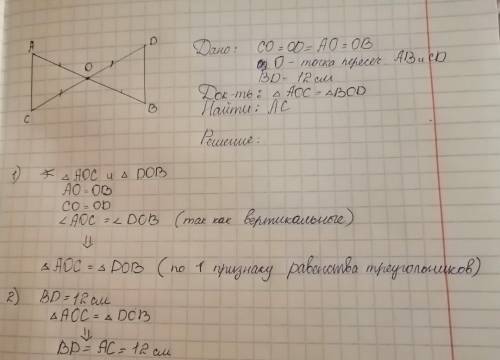 A
D
O
C
B
Дано: CO = OD = AO = OB
O - точка пересеч AB и CD
BD - 12 см
Док-ть: △ AOC = △BOD
Найти: AC
Решение:
1) △ AOC и △ DOB
AO = OB
CO = OD
∠AOC = ∠ DOB (так как вертикальные)
⇓
△ AOC = △ DOB (по 1 признаку равенства треугольников)
2) BD = 12 см
△ AOC = △ DOB
⇓
BD = AC = 12 см